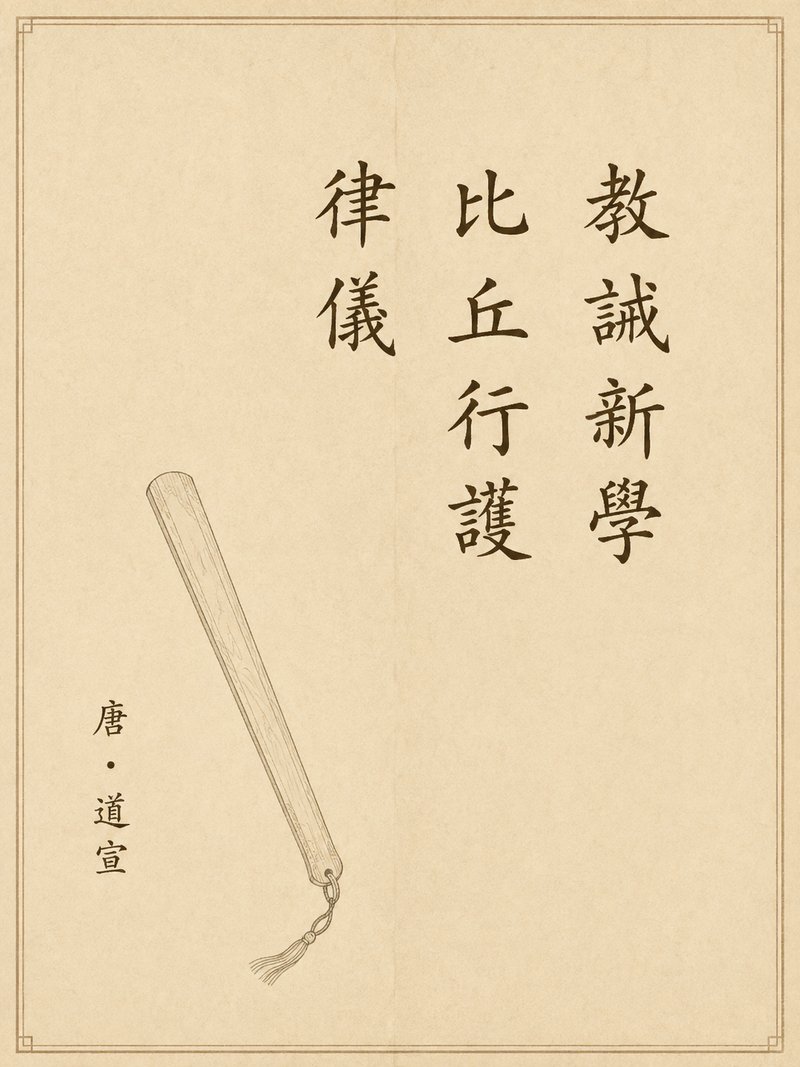 教誡新學
比丘行護
律儀
唐・道宣